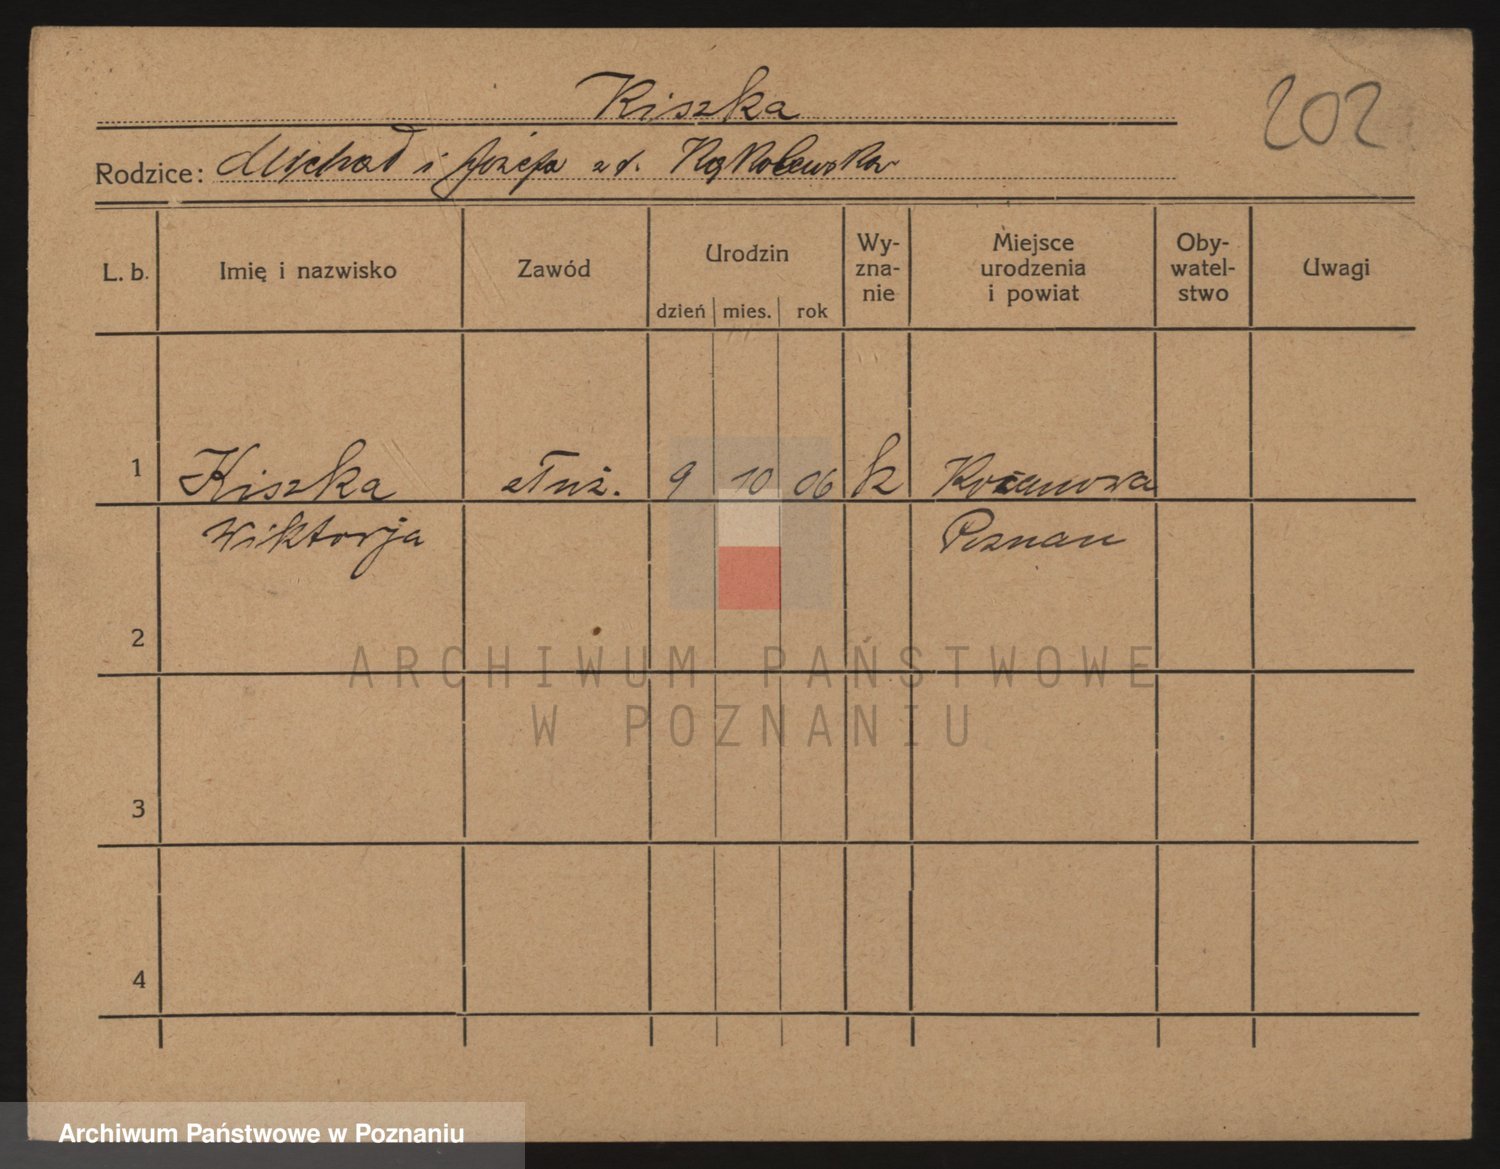 Kiszka
202
Rodzice: Michał i Józefa z d. Kąkolewska
L. b. Imię i nazwisko Zawód Urodzin dzień mies. rok Wy- zna- nie Miejsce urodzenia i powiat Oby- watel- stwo Uwagi
1 Kiszka służ. 9 10 06 k
Wiktorja Poznań
2
3
4
ARCHIWUM PAŃSTWOWE
W POZNANIU
Archiwum Państwowe w Poznaniu